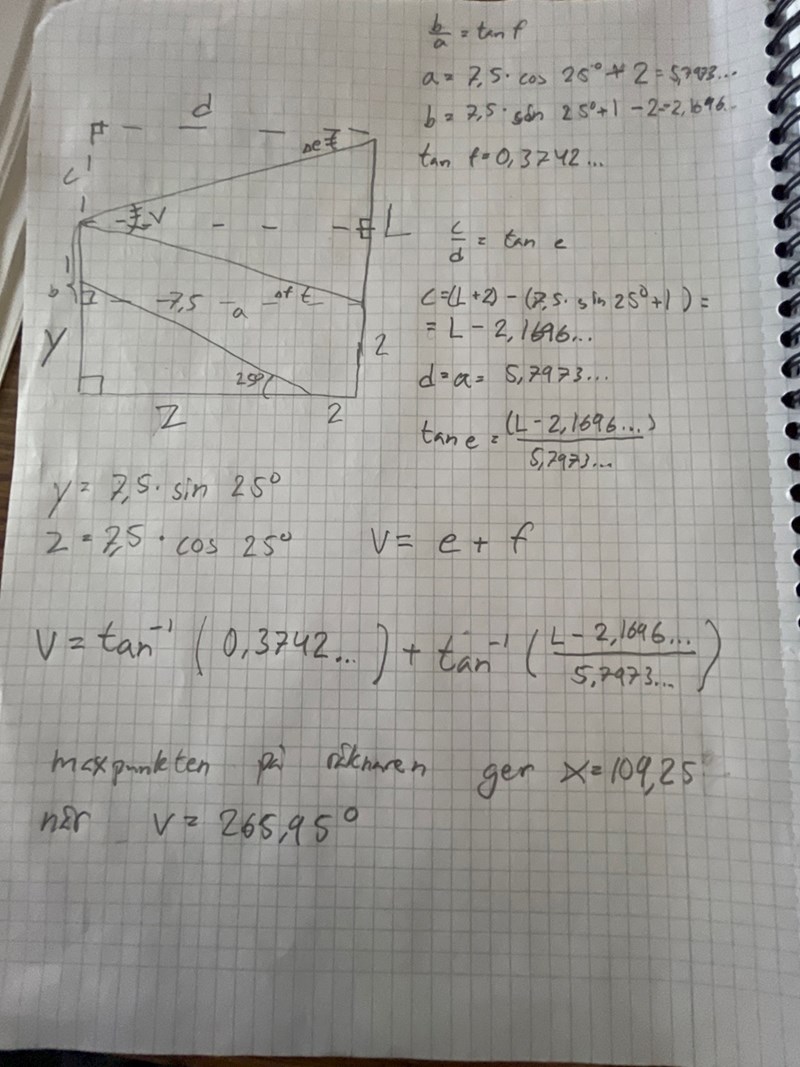 b/a = tan f
a = 7,5 · cos 25° + 2 = 5,7973...
b = 7,5 · sin 25° + 1 - 2 = 2,1696...
tan f = 0,3742...
d
c
e
V
L
b
7,5
a
f
2
y
25°
Z
2
c/d = tan e
C = (L + 2) - (7,5 · sin 25° + 1) =
= L - 2,1696...
d = a = 5,7973...
tan e = (L - 2,1696...)/5,7973...
y = 7,5 · sin 25°
Z = 7,5 · cos 25°
V = e + f
V = tan⁻¹ (0,3742...) + tan⁻¹ (L - 2,1696.../5,7973...)
maxpunkten på räknaren ger x = 109,25
när V = 265,95°